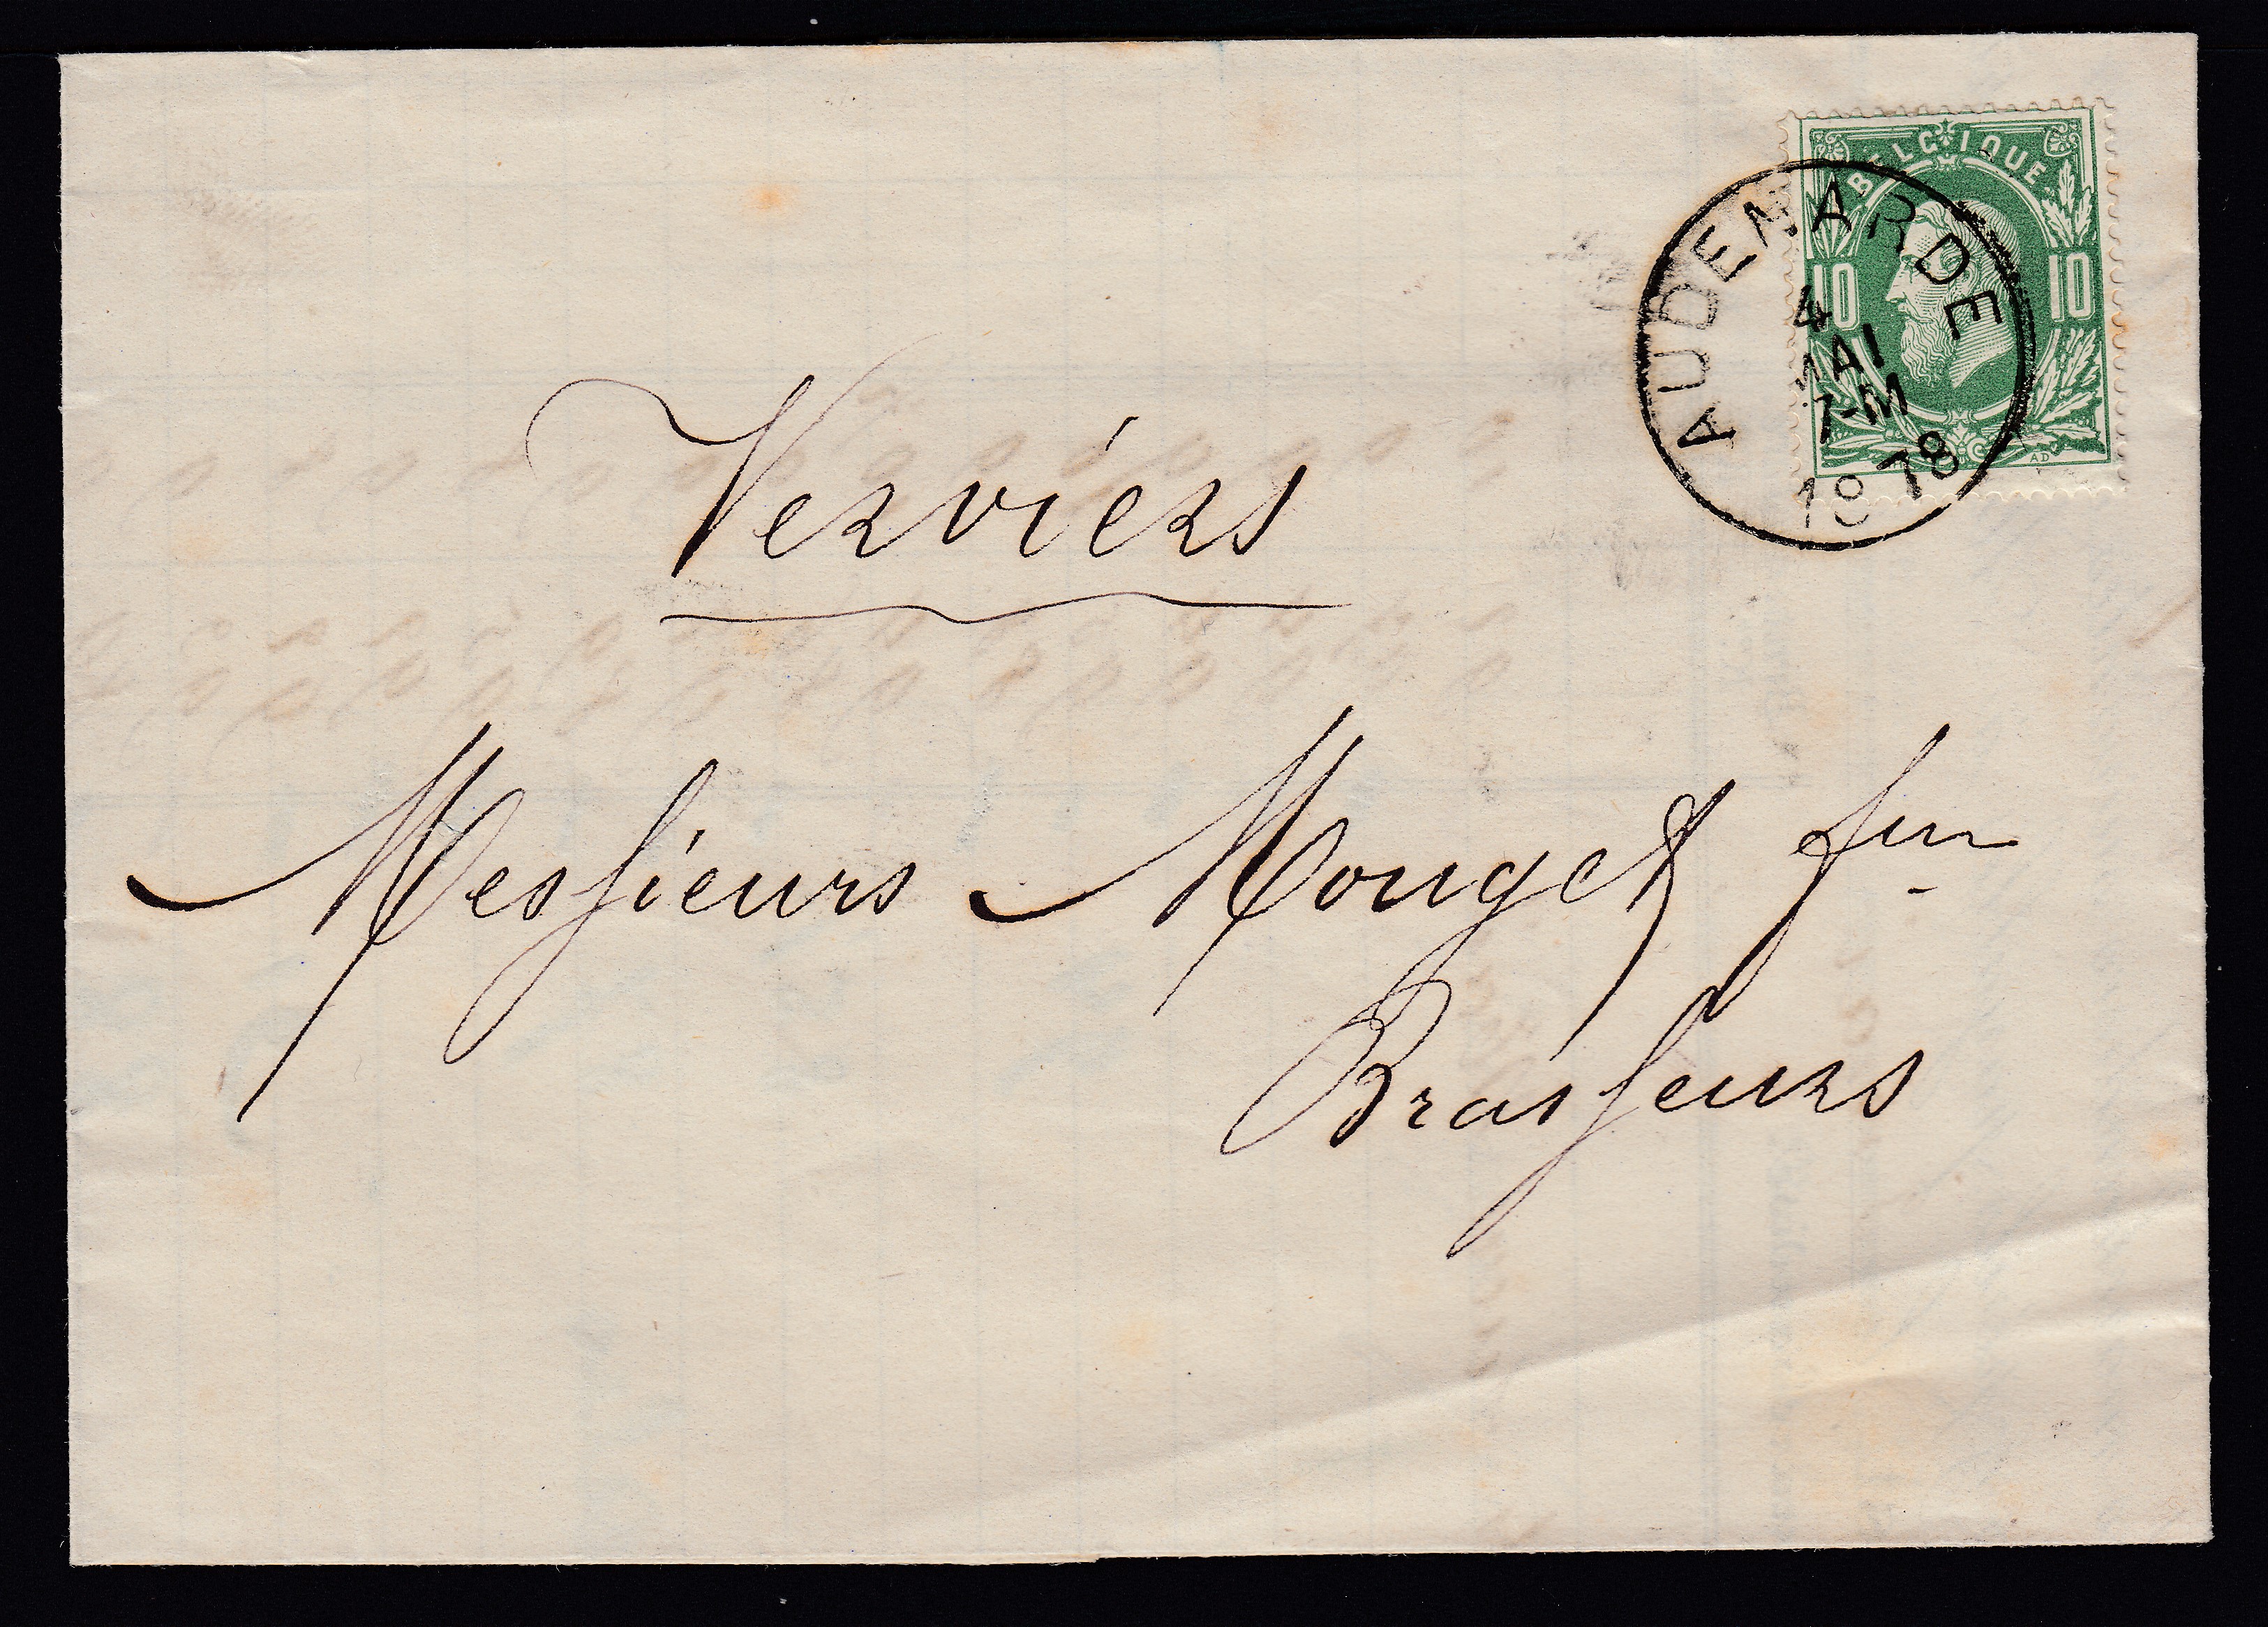 BELGIQUE
10 10
AUDENARDE
4
MAI
7-M
1878
Verviers
Messieurs Mouget
Brasseurs